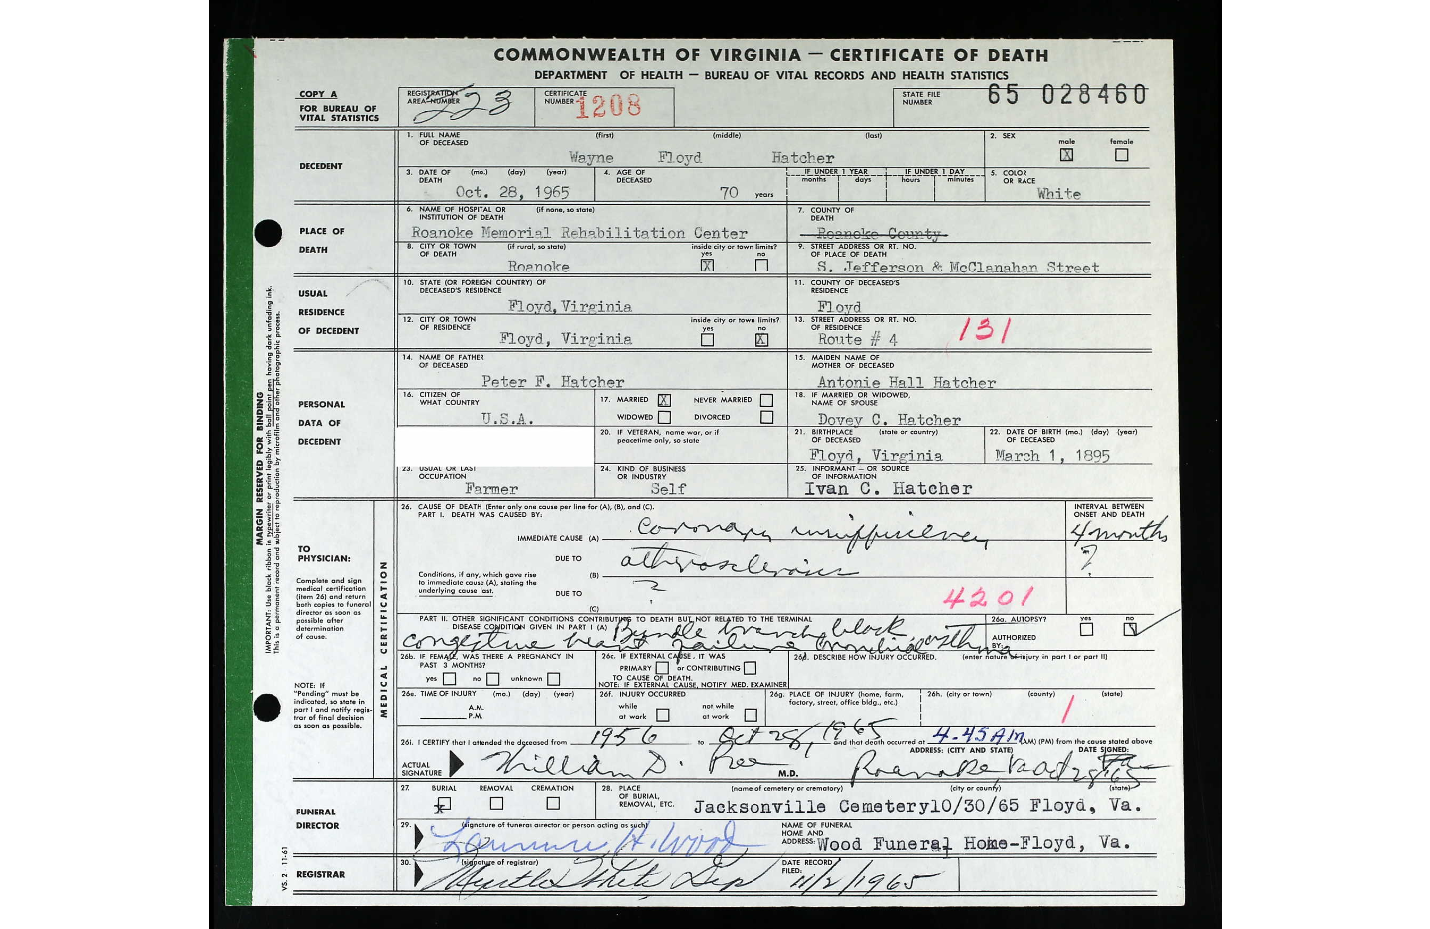 COMMONWEALTH OF VIRGINIA — CERTIFICATE OF DEATH
DEPARTMENT OF HEALTH — BUREAU OF VITAL RECORDS AND HEALTH STATISTICS
COPY A
FOR BUREAU OF VITAL STATISTICS
REGISTRATION AREA NUMBER 223
CERTIFICATE NUMBER 1208
STATE FILE NUMBER 65 028460
DECEDENT
1. FULL NAME OF DECEASED (first) (middle) (last)
Wayne Floyd Hatcher
2. SEX male X female
3. DATE OF DEATH (mo.) (day) (year)
Oct. 28, 1965
4. AGE OF DECEASED 70 years
IF UNDER 1 YEAR months days
IF UNDER 1 DAY hours minutes
5. COLOR OR RACE
White
PLACE OF DEATH
6. NAME OF HOSPITAL OR INSTITUTION OF DEATH (if none, so state)
Roanoke Memorial Rehabilitation Center
7. COUNTY OF DEATH
Roanoke County
8. CITY OR TOWN OF DEATH (if rural, so state) inside city or town limits? yes X no
Roanoke
9. STREET ADDRESS OR RT. NO. OF PLACE OF DEATH
S. Jefferson & McClanahan Street
USUAL RESIDENCE OF DECEDENT
10. STATE (OR FOREIGN COUNTRY) OF DECEASED'S RESIDENCE
Floyd, Virginia
11. COUNTY OF DECEASED'S RESIDENCE
Floyd
12. CITY OR TOWN OF RESIDENCE inside city or town limits? yes no X
Floyd, Virginia
13. STREET ADDRESS OR RT. NO. OF RESIDENCE
Route # 4
131
PERSONAL DATA OF DECEDENT
14. NAME OF FATHER OF DECEASED
Peter F. Hatcher
15. MAIDEN NAME OF MOTHER OF DECEASED
Antonie Hall Hatcher
16. CITIZEN OF WHAT COUNTRY
U.S.A.
17. MARRIED X NEVER MARRIED
WIDOWED DIVORCED
18. IF MARRIED OR WIDOWED, NAME OF SPOUSE
Dovey C. Hatcher
20. IF VETERAN, name war, or if peacetime only, so state
21. BIRTHPLACE OF DECEASED (state or country)
Floyd, Virginia
22. DATE OF BIRTH (mo.) (day) (year) OF DECEASED
March 1, 1895
23. USUAL OR LAST OCCUPATION
Farmer
24. KIND OF BUSINESS OR INDUSTRY
Self
25. INFORMANT — OR SOURCE OF INFORMATION
Ivan C. Hatcher
MARGIN RESERVED FOR BINDING
IMPORTANT: Use black ribbon in typewriter or print legibly with ball point pen having dark unfading ink.
This is a permanent record and subject to reproduction by microfilm and other photographic process.
TO PHYSICIAN:
Complete and sign medical certification (item 26) and return both copies to funeral director as soon as possible after determination of cause.
NOTE: If "Pending" must be indicated, so state in part I and notify registrar of final decision as soon as possible.
MEDICAL CERTIFICATION
26. CAUSE OF DEATH (Enter only one cause per line for (A), (B), and (C).
PART I. DEATH WAS CAUSED BY:
INTERVAL BETWEEN ONSET AND DEATH
IMMEDIATE CAUSE (A) Coronary insufficiency 4 months
DUE TO (B) atherosclerosis ?
Conditions, if any, which gave rise to immediate cause (A), stating the underlying cause last.
DUE TO (C) ?
4201
PART II. OTHER SIGNIFICANT CONDITIONS CONTRIBUTING TO DEATH BUT NOT RELATED TO THE TERMINAL DISEASE CONDITION GIVEN IN PART I (A)
Bundle branch block
congestive heart failure bronchial asthma
26a. AUTOPSY? yes no
AUTHORIZED BY:
26b. IF FEMALE, WAS THERE A PREGNANCY IN PAST 3 MONTHS?
yes no unknown
26c. IF EXTERNAL CAUSE, IT WAS
PRIMARY or CONTRIBUTING
TO CAUSE OF DEATH.
NOTE: IF EXTERNAL CAUSE, NOTIFY MED. EXAMINER
26d. DESCRIBE HOW INJURY OCCURRED. (enter nature of injury in part I or part II)
26e. TIME OF INJURY (mo.) (day) (year)
A.M.
P.M.
26f. INJURY OCCURRED
while at work not while at work
26g. PLACE OF INJURY (home, farm, factory, street, office bldg., etc.)
26h. (city or town) (county) (state)
1
26i. I CERTIFY that I attended the deceased from 1956 to Oct 28, 1965 and that death occurred at 4:45 AM (AM) (PM) from the cause stated above
ACTUAL SIGNATURE William D. M.D.
ADDRESS: (CITY AND STATE) DATE SIGNED:
Roanoke, Va Oct 28
FUNERAL DIRECTOR
27. BURIAL x REMOVAL CREMATION
28. PLACE OF BURIAL, REMOVAL, ETC. (name of cemetery or crematory) (city or county) (state)
Jacksonville Cemetery10/30/65 Floyd, Va.
29. (signature of funeral director or person acting as such)
H. Wood
NAME OF FUNERAL HOME AND ADDRESS: Wood Funeral Home-Floyd, Va.
REGISTRAR
30. (signature of registrar)
Myrtle White Dep
DATE RECORD FILED: 11/2/1965
VS. 2 11-61